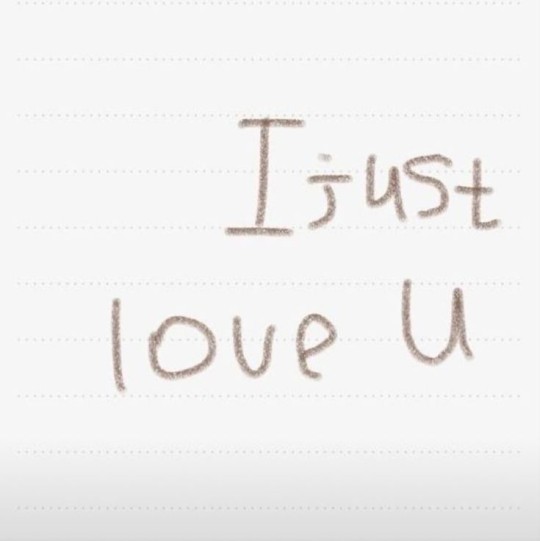 I just
love u